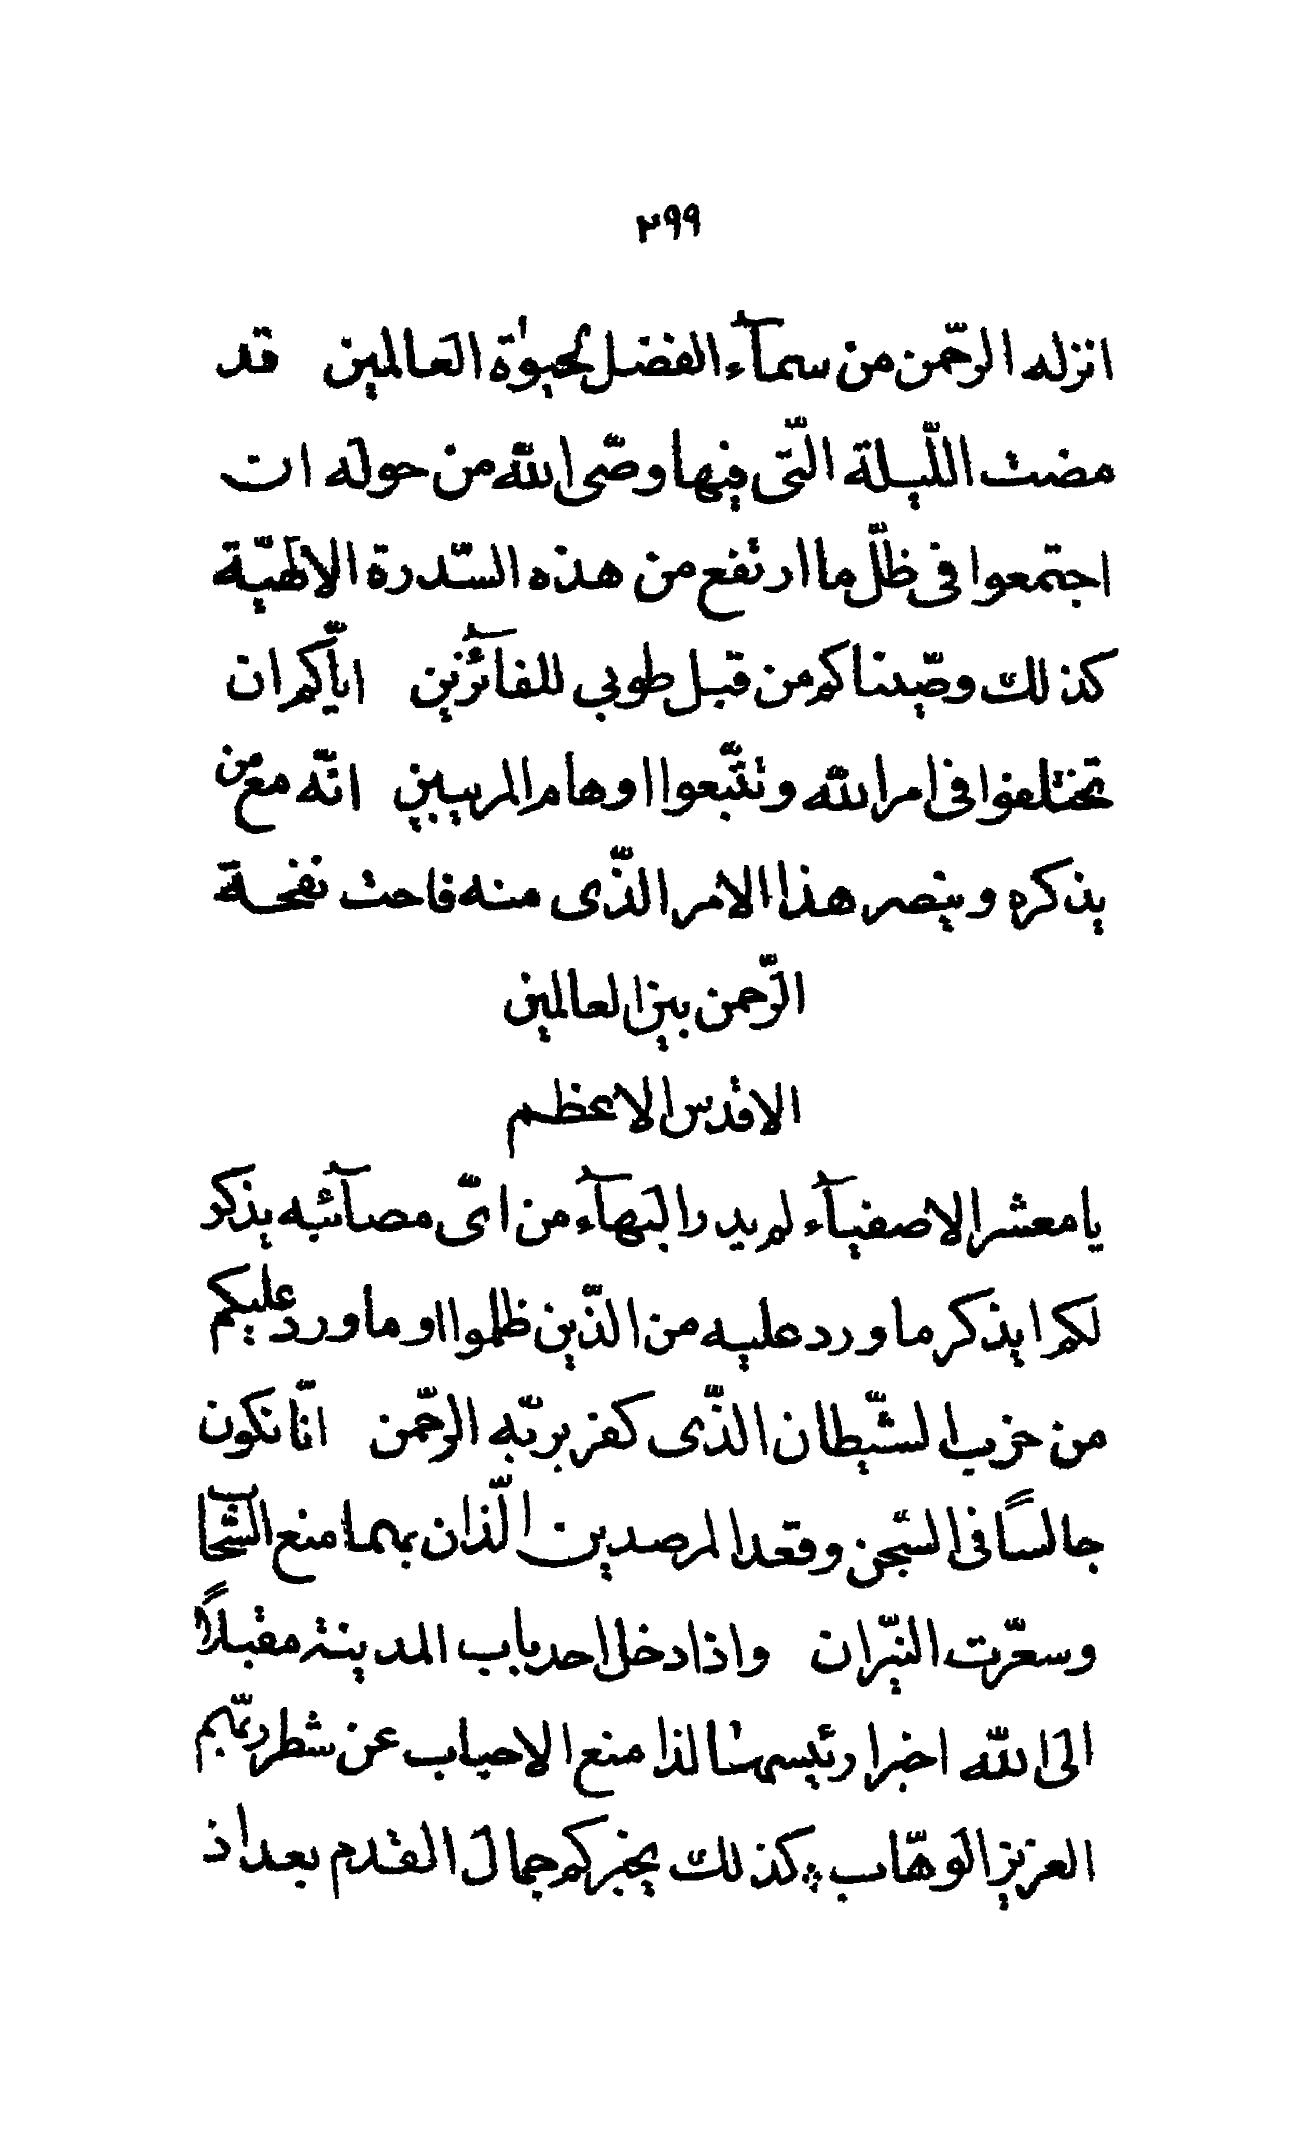 ٢٩٩
انزله الرّحمن من سمآء الفضل لحيوٰة العالمين قد
مضت اللّيلة الّتى فيها وصّى الله من حوله ان
اجتمعوا فى ظلّ ما ارتفع من هذه السّدرة الالٰهيّة
كذلك وصّيناكم من قبل طوبى للفائزين ايّاكم ان
تختلفوا فى امر الله وتتّبعوا اوهام المريبين انّه مع من
يذكره وينصر هذا الامر الّذى منه فاحت نفحة
الرّحمن بين العالمين
الاقدس الاعظم
يا معشر الاصفيآء لم يدر البهآء من اىّ مصآئبه يذكر
لكم ايذكر ما ورد عليه من الّذين ظلموا او ما ورد عليكم
من حزب الشّيطان الّذى كفر بربّه الرّحمن انّا نكون
جالسًا فى السّجن وقعد المرصدين الّذان بهما منع السّحاب
وسعّرت النّيران واذا دخل احد باب المدينة مقبلًا
الى الله اخبرا رئيسها لذا منع الاحباب عن شطر ربّهم
العزيز الوهّاب كذلك يخبركم جمال القدم بعد اذ